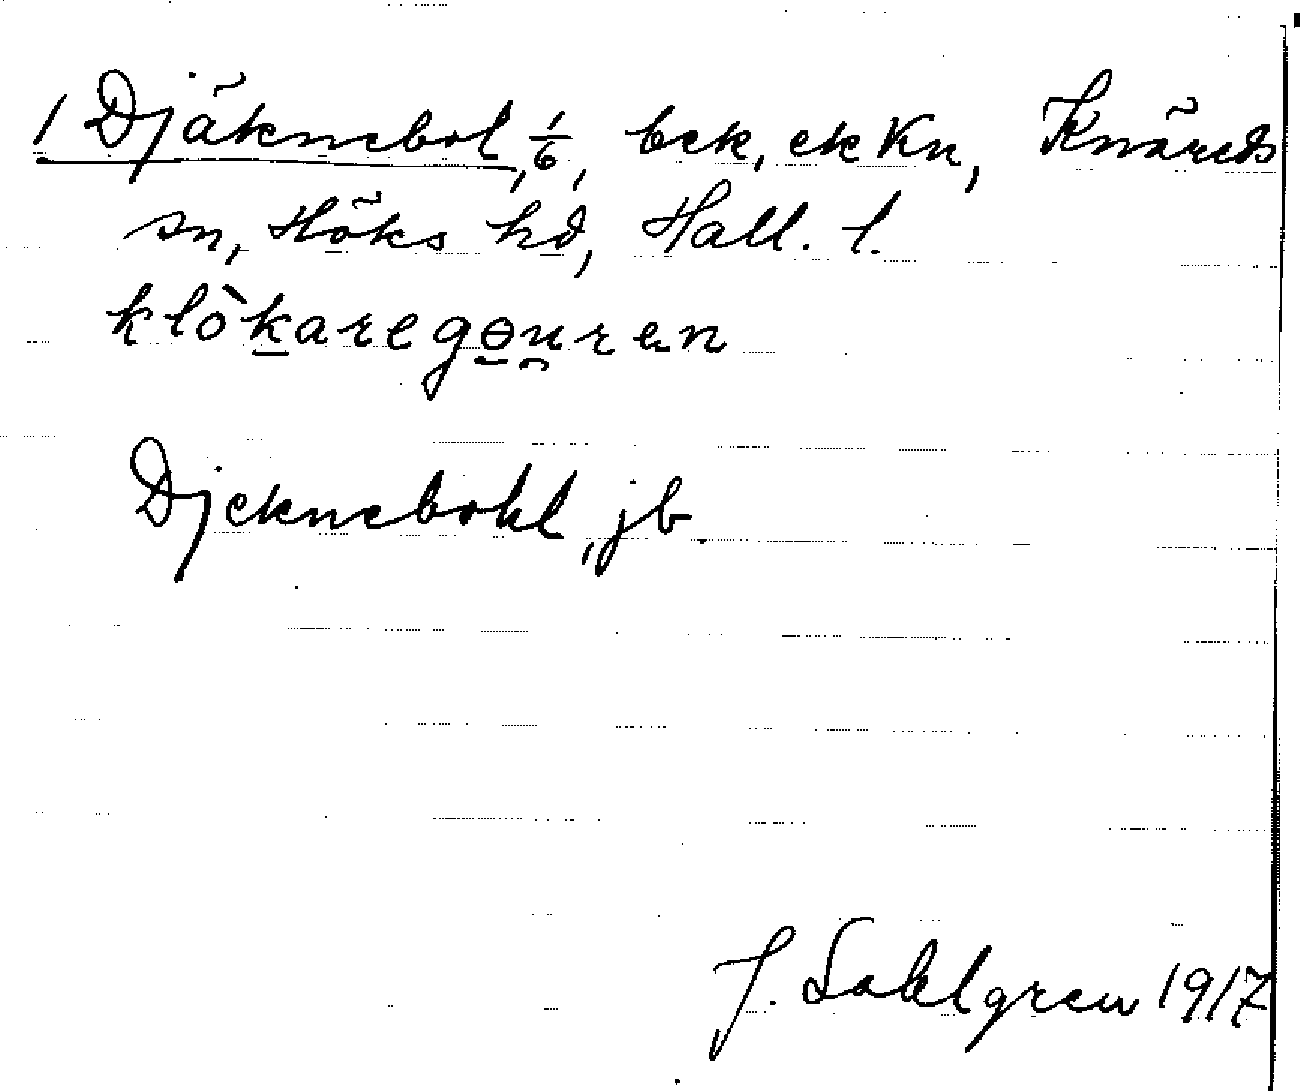 1 Djäknebol, 1/6, bck, ck Kn, Knäreds
sn, Höks hd, Hall. l.
klòkaregɵu̯ren
Djeknebohl, jb.
J. Sahlgren 1917